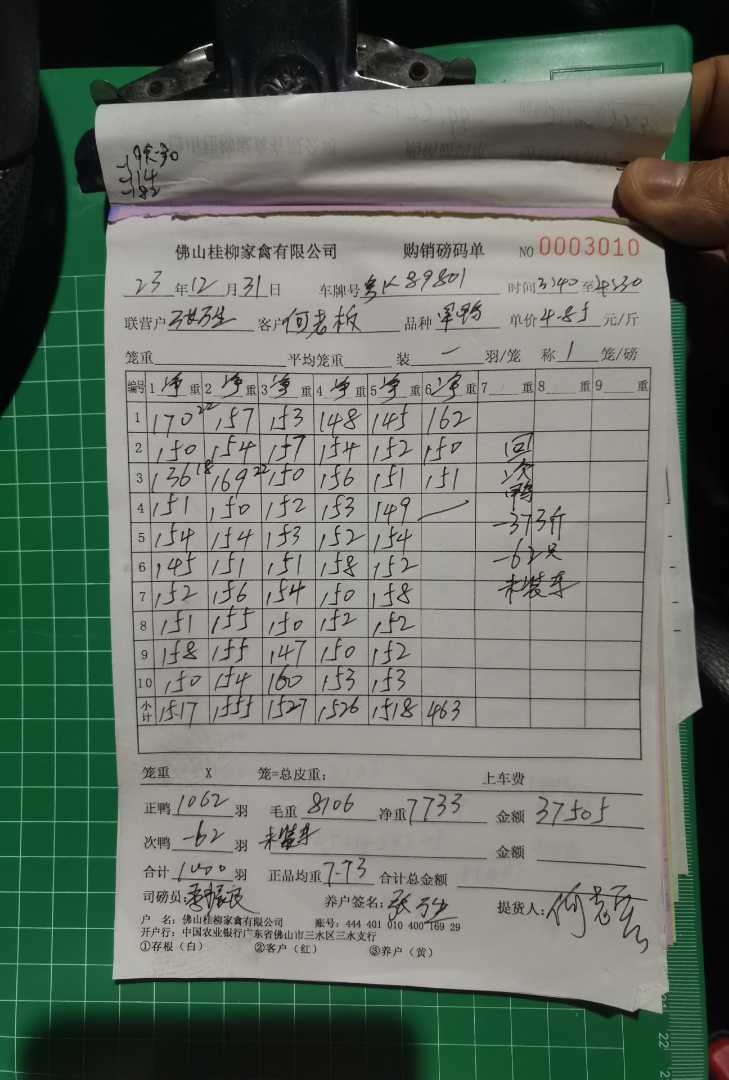 佛山桂柳家禽有限公司 购销磅码单 NO 0003010
23 年 12 月 31 日 车牌号 粤K89801 时间 3:40 至 4:30
联营户 客户 何老板 品种 单价 4.85 元/斤
笼重 平均笼重 装 一 羽/笼 称 1 笼/磅
编号 1 净 重 2 净 重 3 净 重 4 净 重 5 净 重 6 净 重 7 重 8 重 9 重
1 170 22 157 153 148 145 162
2 150 154 157 154 152 150 回
3 136 18 169 22 150 156 151 151 次鸭
4 151 150 152 153 149 -373斤
5 154 154 153 152 154 -62只
6 145 151 151 158 152
7 152 156 154 150 158 未装车
8 151 155 150 152 152
9 158 155 147 150 152
10 150 154 160 153 153
小计 1517 1555 1527 1526 1518 463
笼重 X 笼=总皮重: 上车费
正鸭 1062 羽 毛重 8106 净重 7733 金额 37505
次鸭 -62 羽 未装车 金额
合计 1000 羽 正品均重 7.73 合计总金额
司磅员: 养户签名: 提货人:
户 名: 佛山桂柳家禽有限公司 账号: 444 401 010 400 169 29
开户行: 中国农业银行广东省佛山市三水区三水支行
①存根(白) ②客户(红) ③养户(黄)